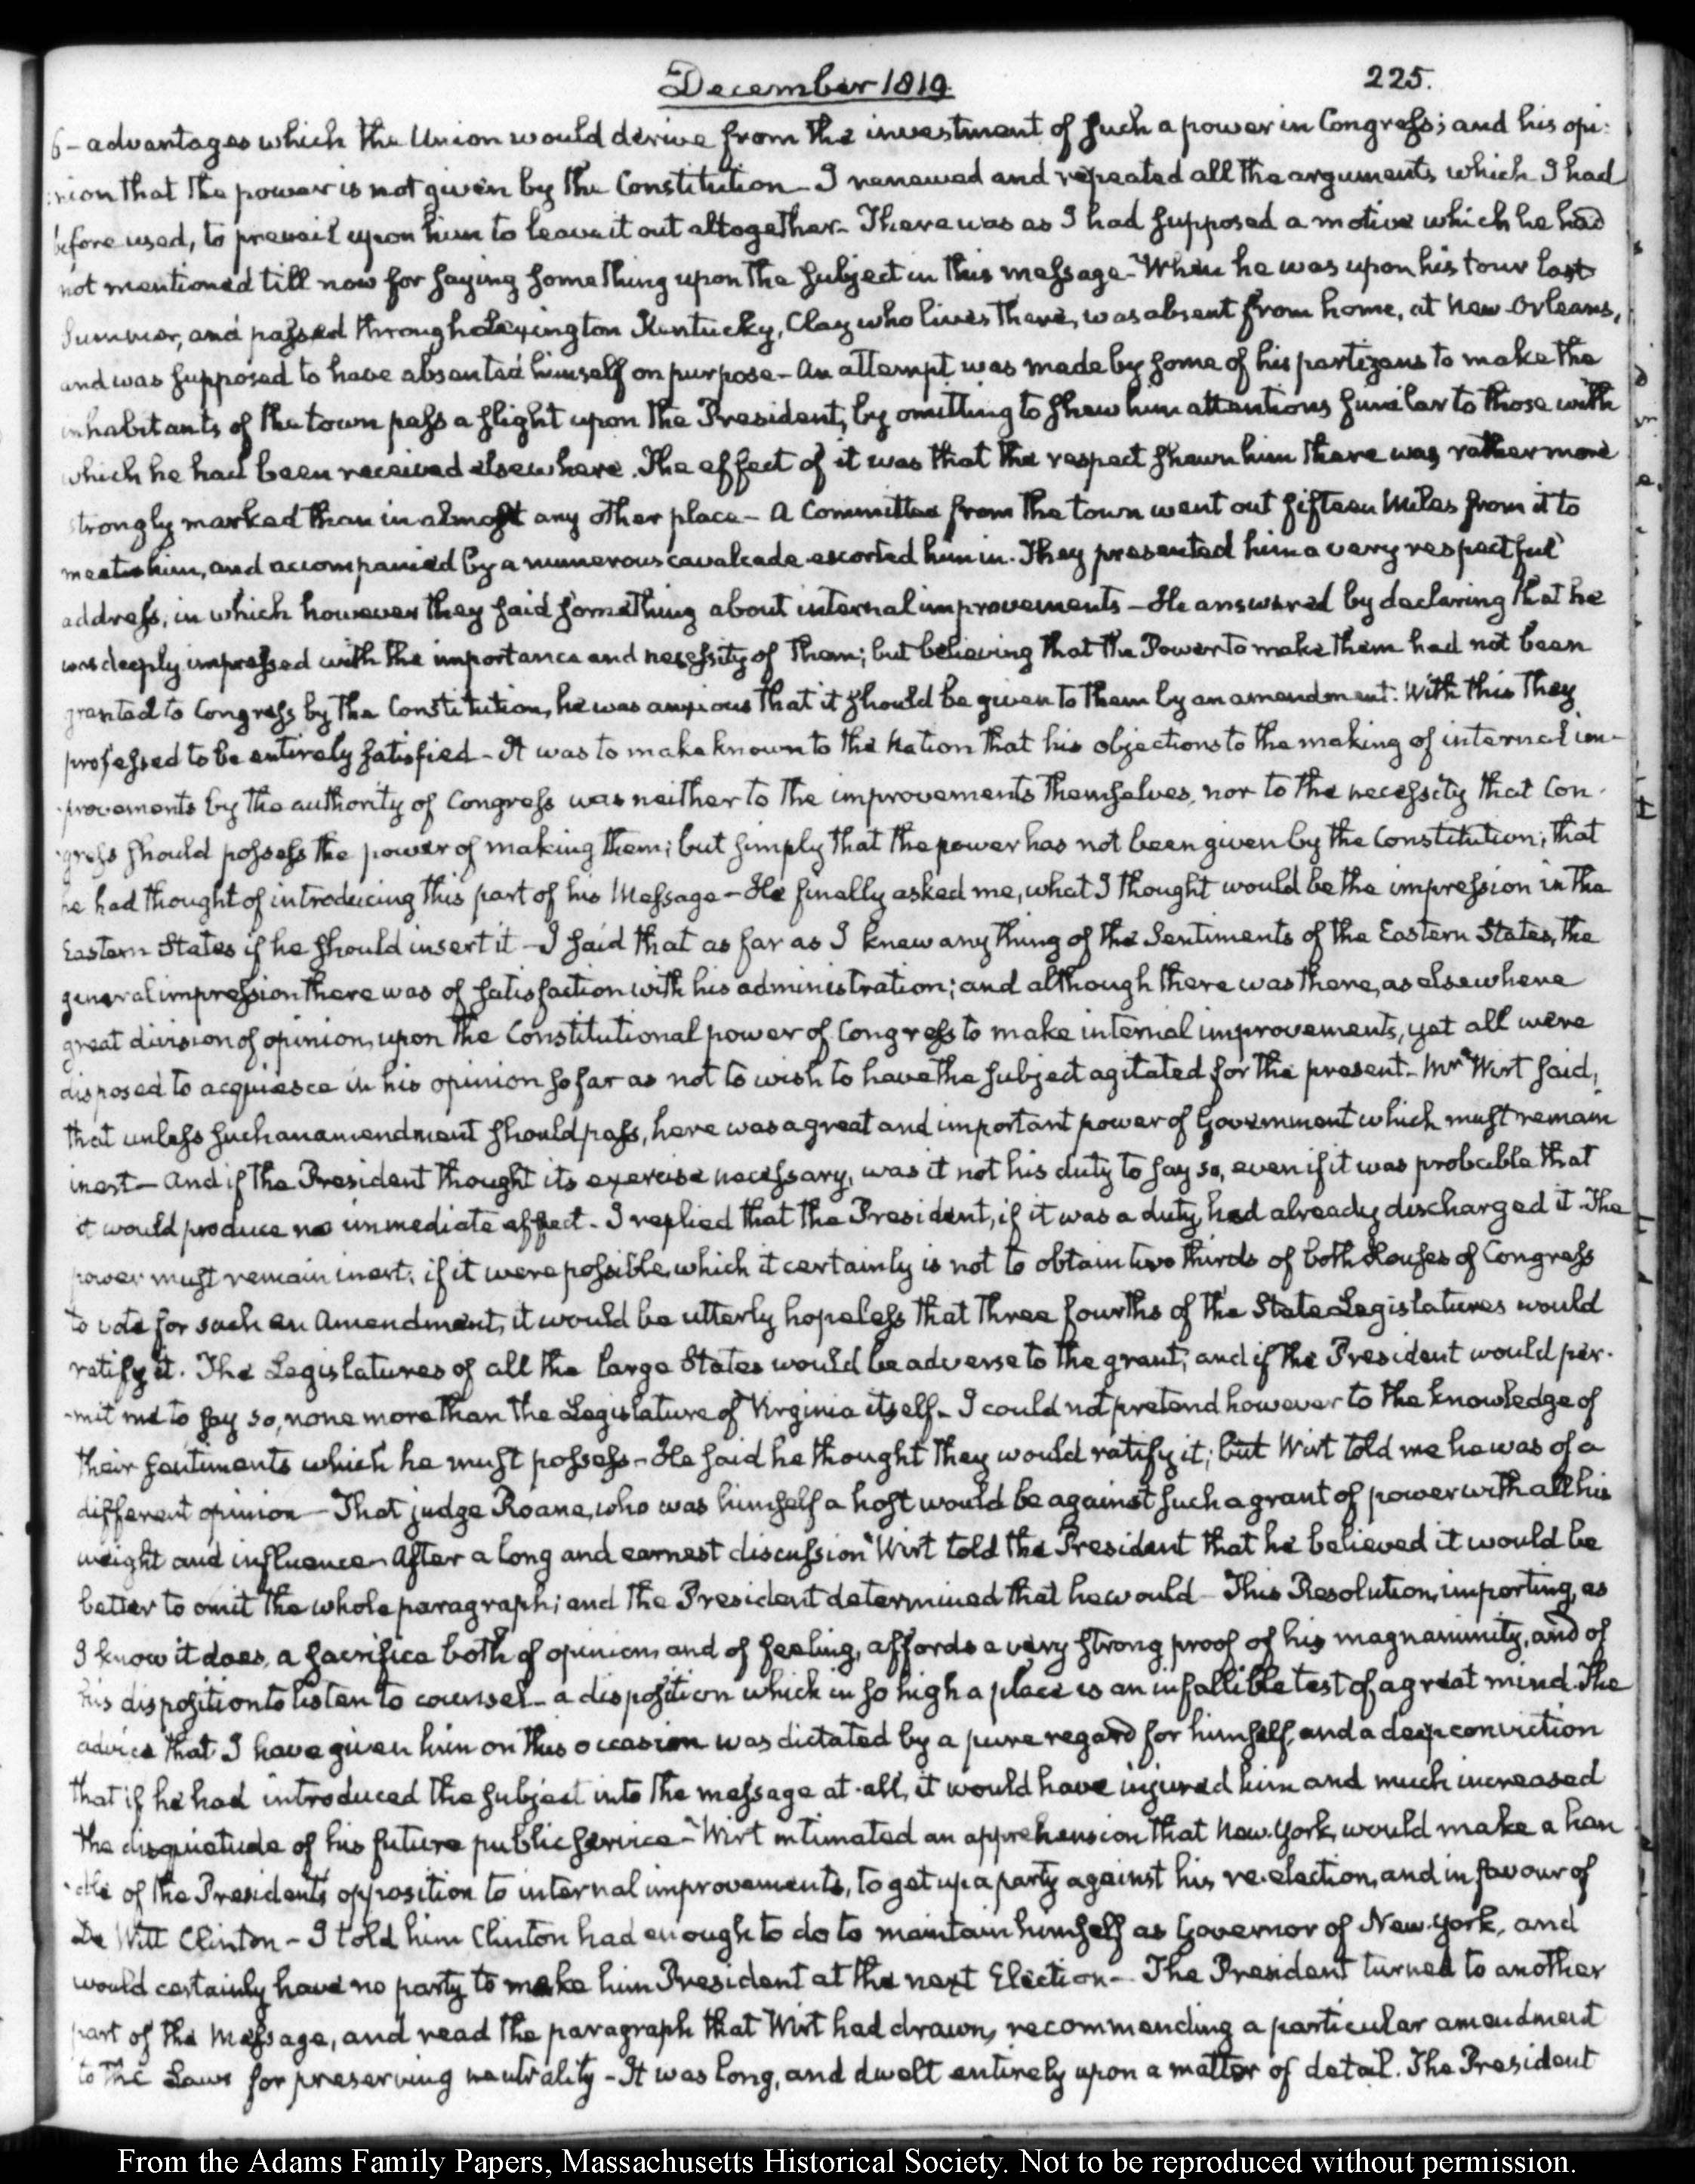 December 1819.
225.
6 – advantages which the Union would derive from the investment of such a power in Congress; and his opi:
:nion that the power is not given by the Constitution – I renewed and repeated all the arguments which I had
before used, to prevail upon him to leave it out altogether – There was as I had supposed a motive which he had
not mentioned till now for saying something upon the subject in this message – When he was upon his tour last
Summer, and passed through Lexington Kentucky, Clay who lives there, was absent from home, at New-Orleans,
and was supposed to have absented himself on purpose – An attempt was made by some of his partizans to make the
inhabitants of the town pass a slight upon the President, by omitting to shew him attentions similar to those with
which he had been received elsewhere. The effect of it was that the respect shewn him there was rather more
strongly marked than in almost any other place – A Committee from the town went out fifteen Miles from it to
meet him, and accompanied by a numerous cavalcade escorted him in. They presented him a very respectful
address, in which however they said something about internal improvements – He answered by declaring that he
was deeply impressed with the importance and necessity of them; but believing that the Power to make them had not been
granted to Congress by the Constitution, he was anxious that it should be given to them by an amendment. With this they
professed to be entirely satisfied – It was to make known to the Nation that his objections to the making of internal im–
provements by the authority of Congress was neither to the improvements themselves, nor to the necessity that Con–
gress should possess the power of making them; but simply that the power has not been given by the Constitution; that
he had thought of introducing this part of his Message – He finally asked me, what I thought would be the impression in the
Eastern States if he should insert it – I said that as far as I knew any thing of the Sentiments of the Eastern States, the
general impression there was of satisfaction with his administration; and although there was there, as elsewhere
great division of opinion, upon the Constitutional power of Congress to make internal improvements, yet all were
disposed to acquiesce in his opinion so far as not to wish to have the subject agitated for the present – Mr Wirt said,
that unless such an amendment should pass, here was a great and important power of Government which must remain
inert – And if the President thought its exercise necessary, was it not his duty to say so, even if it was probable that
it would produce no immediate effect – I replied that the President, if it was a duty, had already discharged it – The
power must remain inert; if it were possible, which it certainly is not to obtain two thirds of both Houses of Congress
to vote for such an Amendment, it would be utterly hopeless that three fourths of the State Legislatures would
ratify it. The Legislatures of all the large States would be adverse to the grant; and if the President would per–
–mit me to say so, none more than the Legislature of Virginia itself – I could not pretend however to the knowledge of
their sentiments which he must possess – He said he thought they would ratify it; but Wirt told me he was of a
different opinion – That judge Roane, who was himself a host would be against such a grant of power with all his
weight and influence – After a long and earnest discussion Wirt told the President that he believed it would be
better to omit the whole paragraph; and the President determined that he would – This Resolution, importing, as
I know it does, a sacrifice both of opinion, and of feeling, affords a very strong proof of his magnanimity, and of
his disposition to listen to counsel – a disposition which in so high a place is an infallible test of a great mind. The
advice that I have given him on this occasion was dictated by a pure regard for himself, and a deep conviction
that if he had introduced the subject into the message at all, it would have injured him and much increased
the disquietude of his future public service – Wirt intimated an apprehension that New-York, would make a han
–dle of the President's opposition to internal improvements, to get up a party against his re-election, and in favour of
De Witt Clinton – I told him Clinton had enough to do to maintain himself as Governor of New-York, and
would certainly have no party to make him President at the next Election – The President turned to another
part of the Message, and read the paragraph that Wirt had drawn, recommending a particular amendment
to the Laws for preserving neutrality – It was long, and dwelt entirely upon a matter of detail. The President
From the Adams Family Papers, Massachusetts Historical Society. Not to be reproduced without permission.